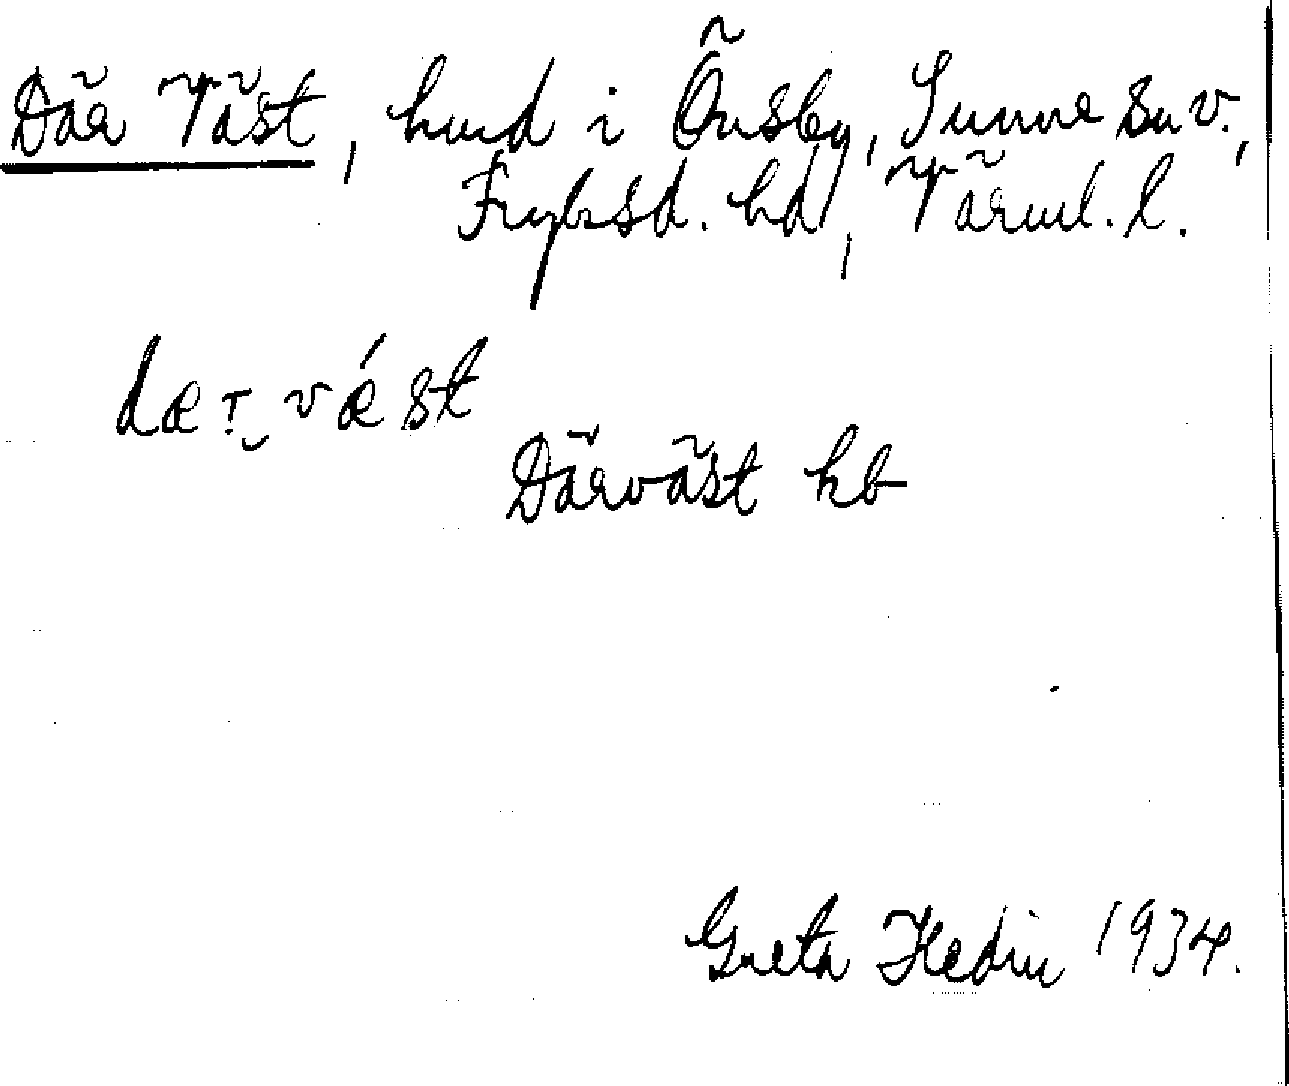 Där Väst, hmd i Önsby, Sunne sn v.,
Fryksd. hd, Värml. l.
dær vǽst
Därväst kb
Greta Hedin 1934.